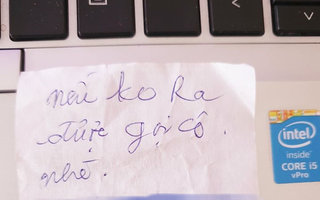 nếu ko Ra
được gọi cô.
nhé.
intel
inside™
CORE i5
vPro